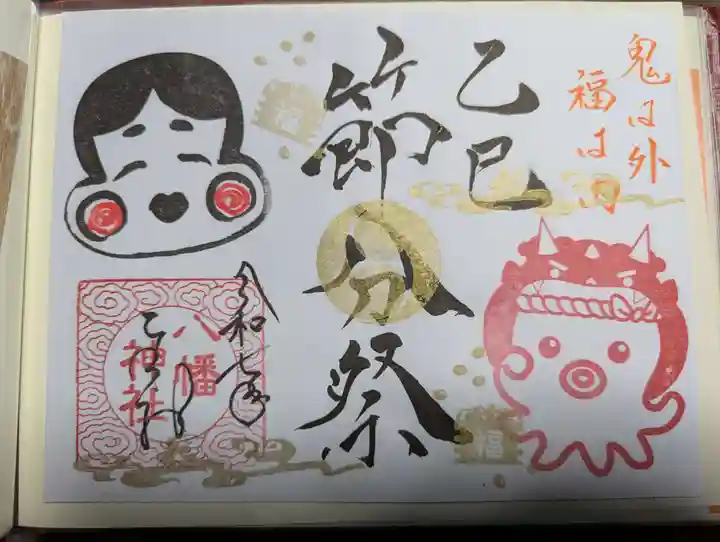 鬼は外
福は内
乙巳
節分祭
福
福
令和七年
二月
八幡
神社